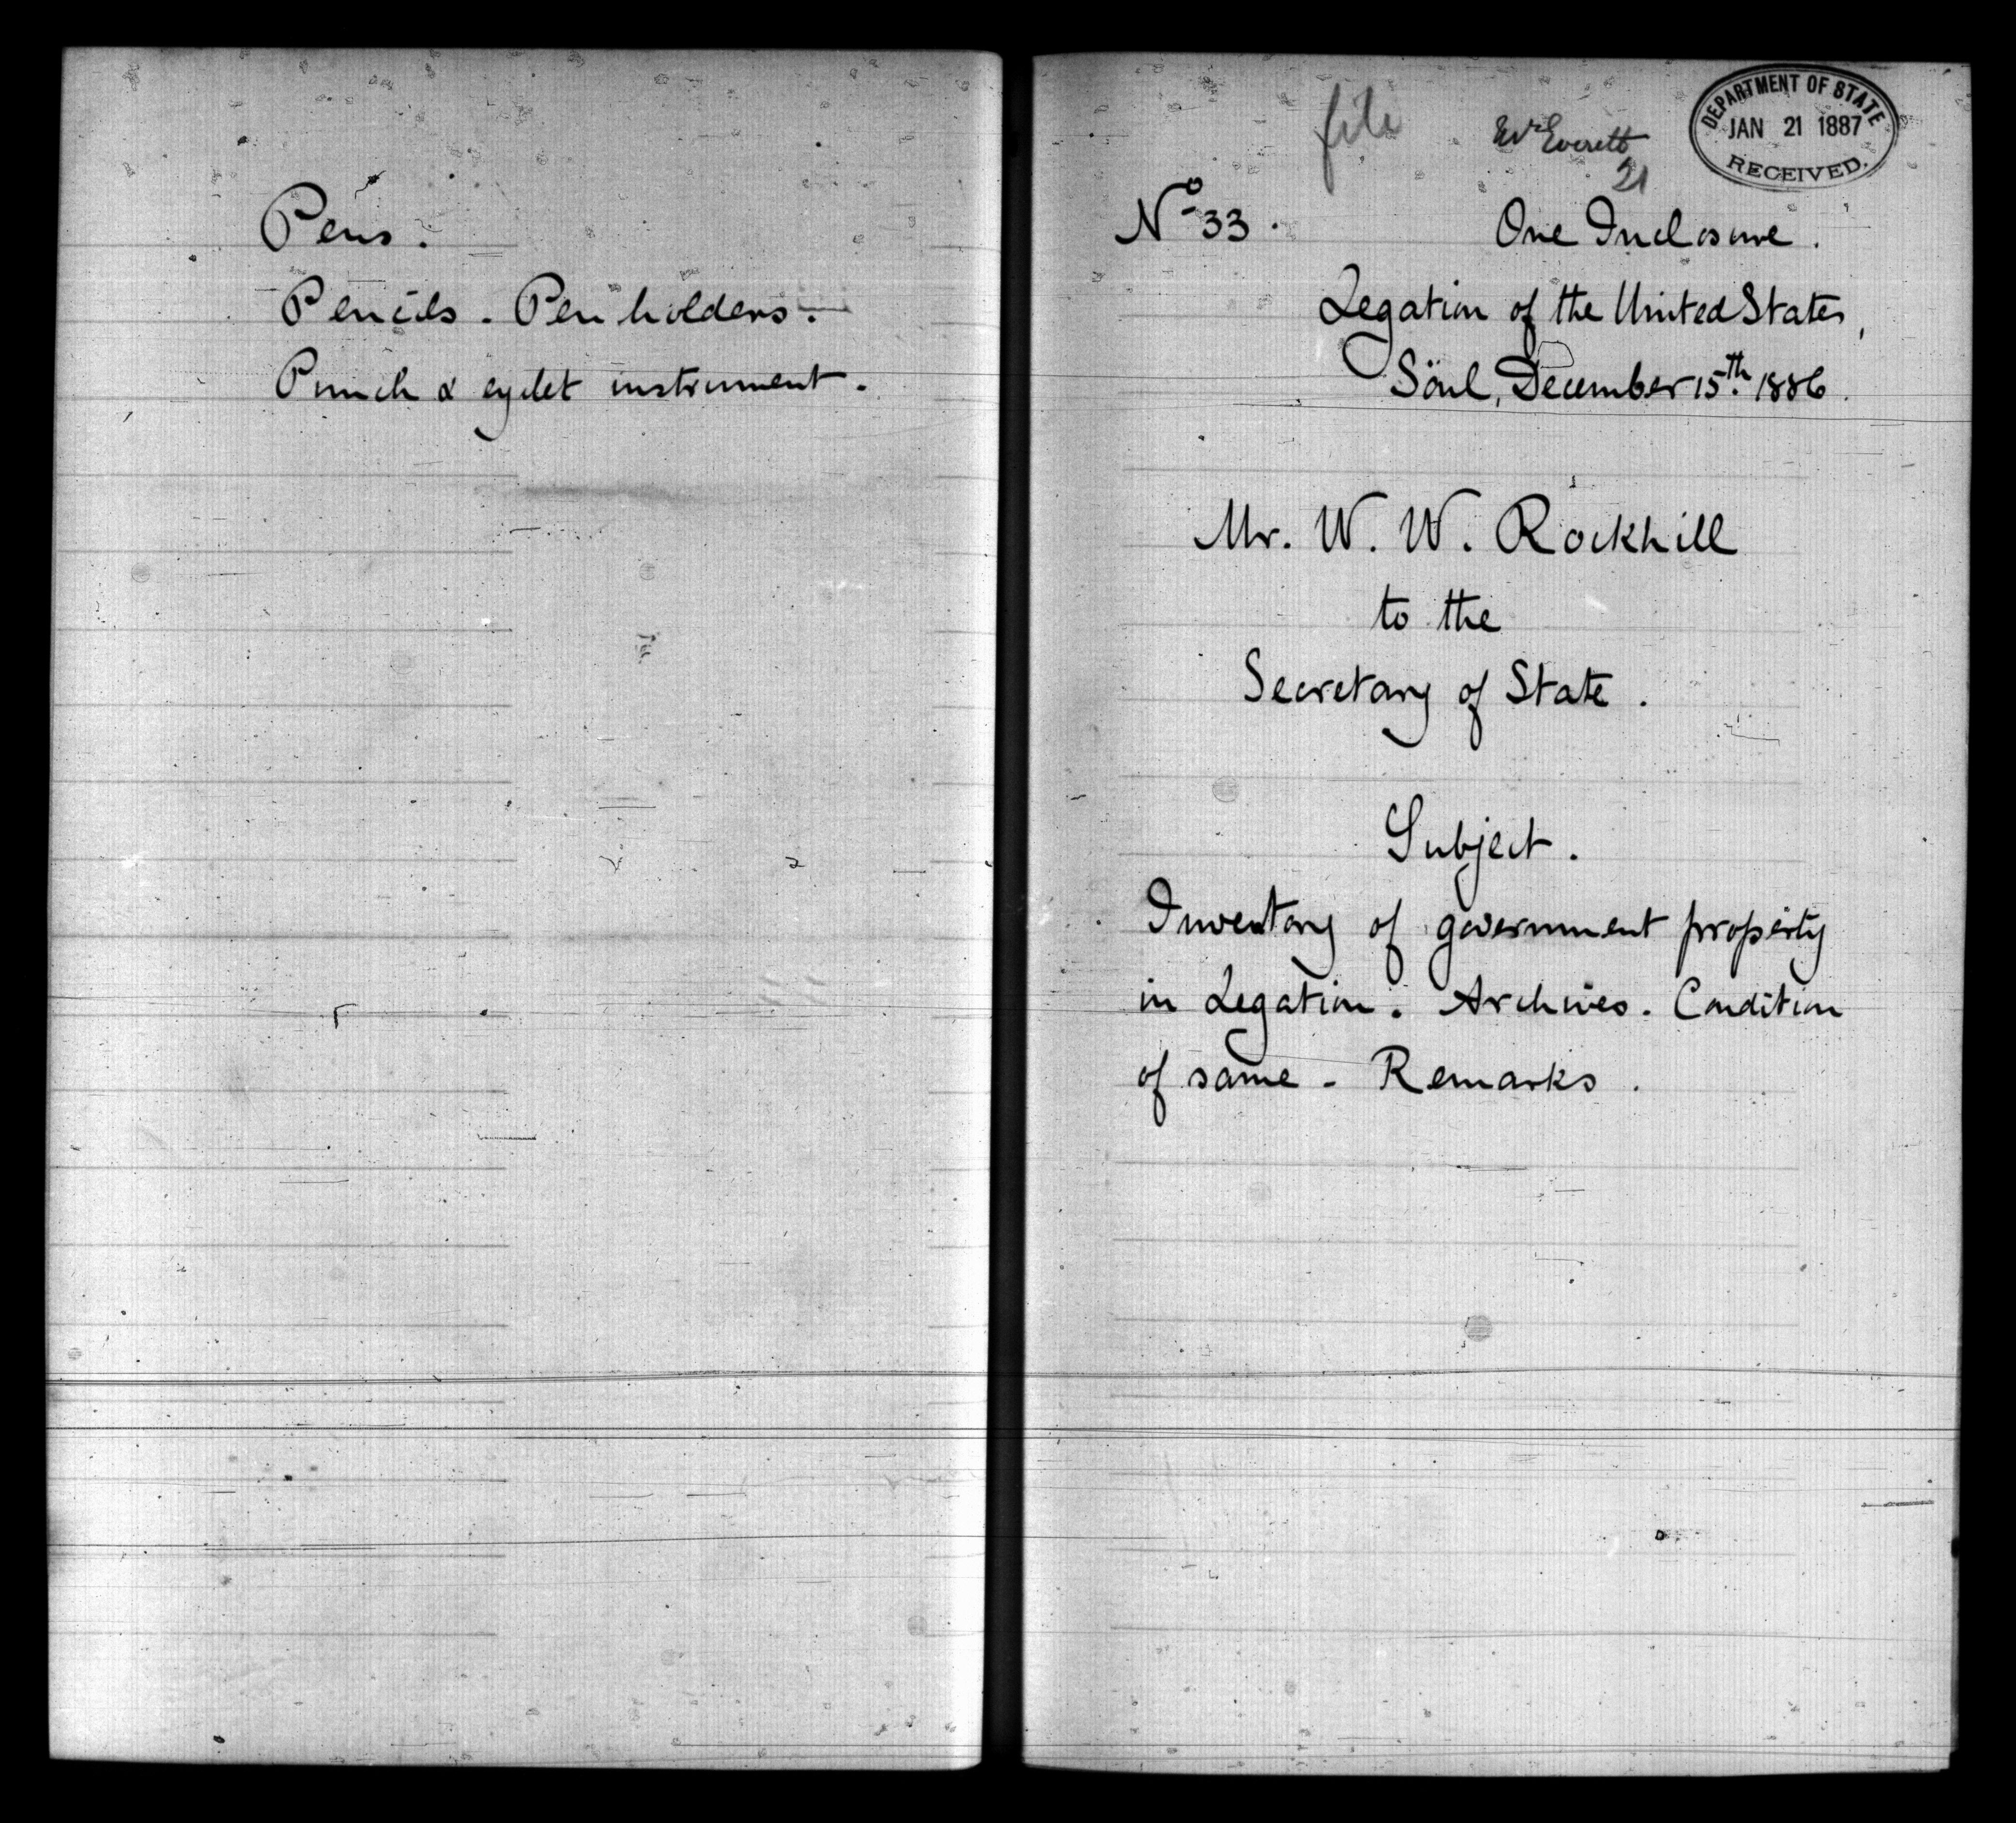 Pens.
Pencils. Pen holders.
Punch & eyelet instrument.
file
Mr Everett
21
DEPARTMENT OF STATE
JAN 21 1887
RECEIVED.
Nº 33.
One Inclosure.
Legation of the United States,
Söul, December 15th. 1886.
Mr. W. W. Rockhill
to the
Secretary of State.
Subject.
Inventory of government property
in Legation. Archives. Condition
of same - Remarks.